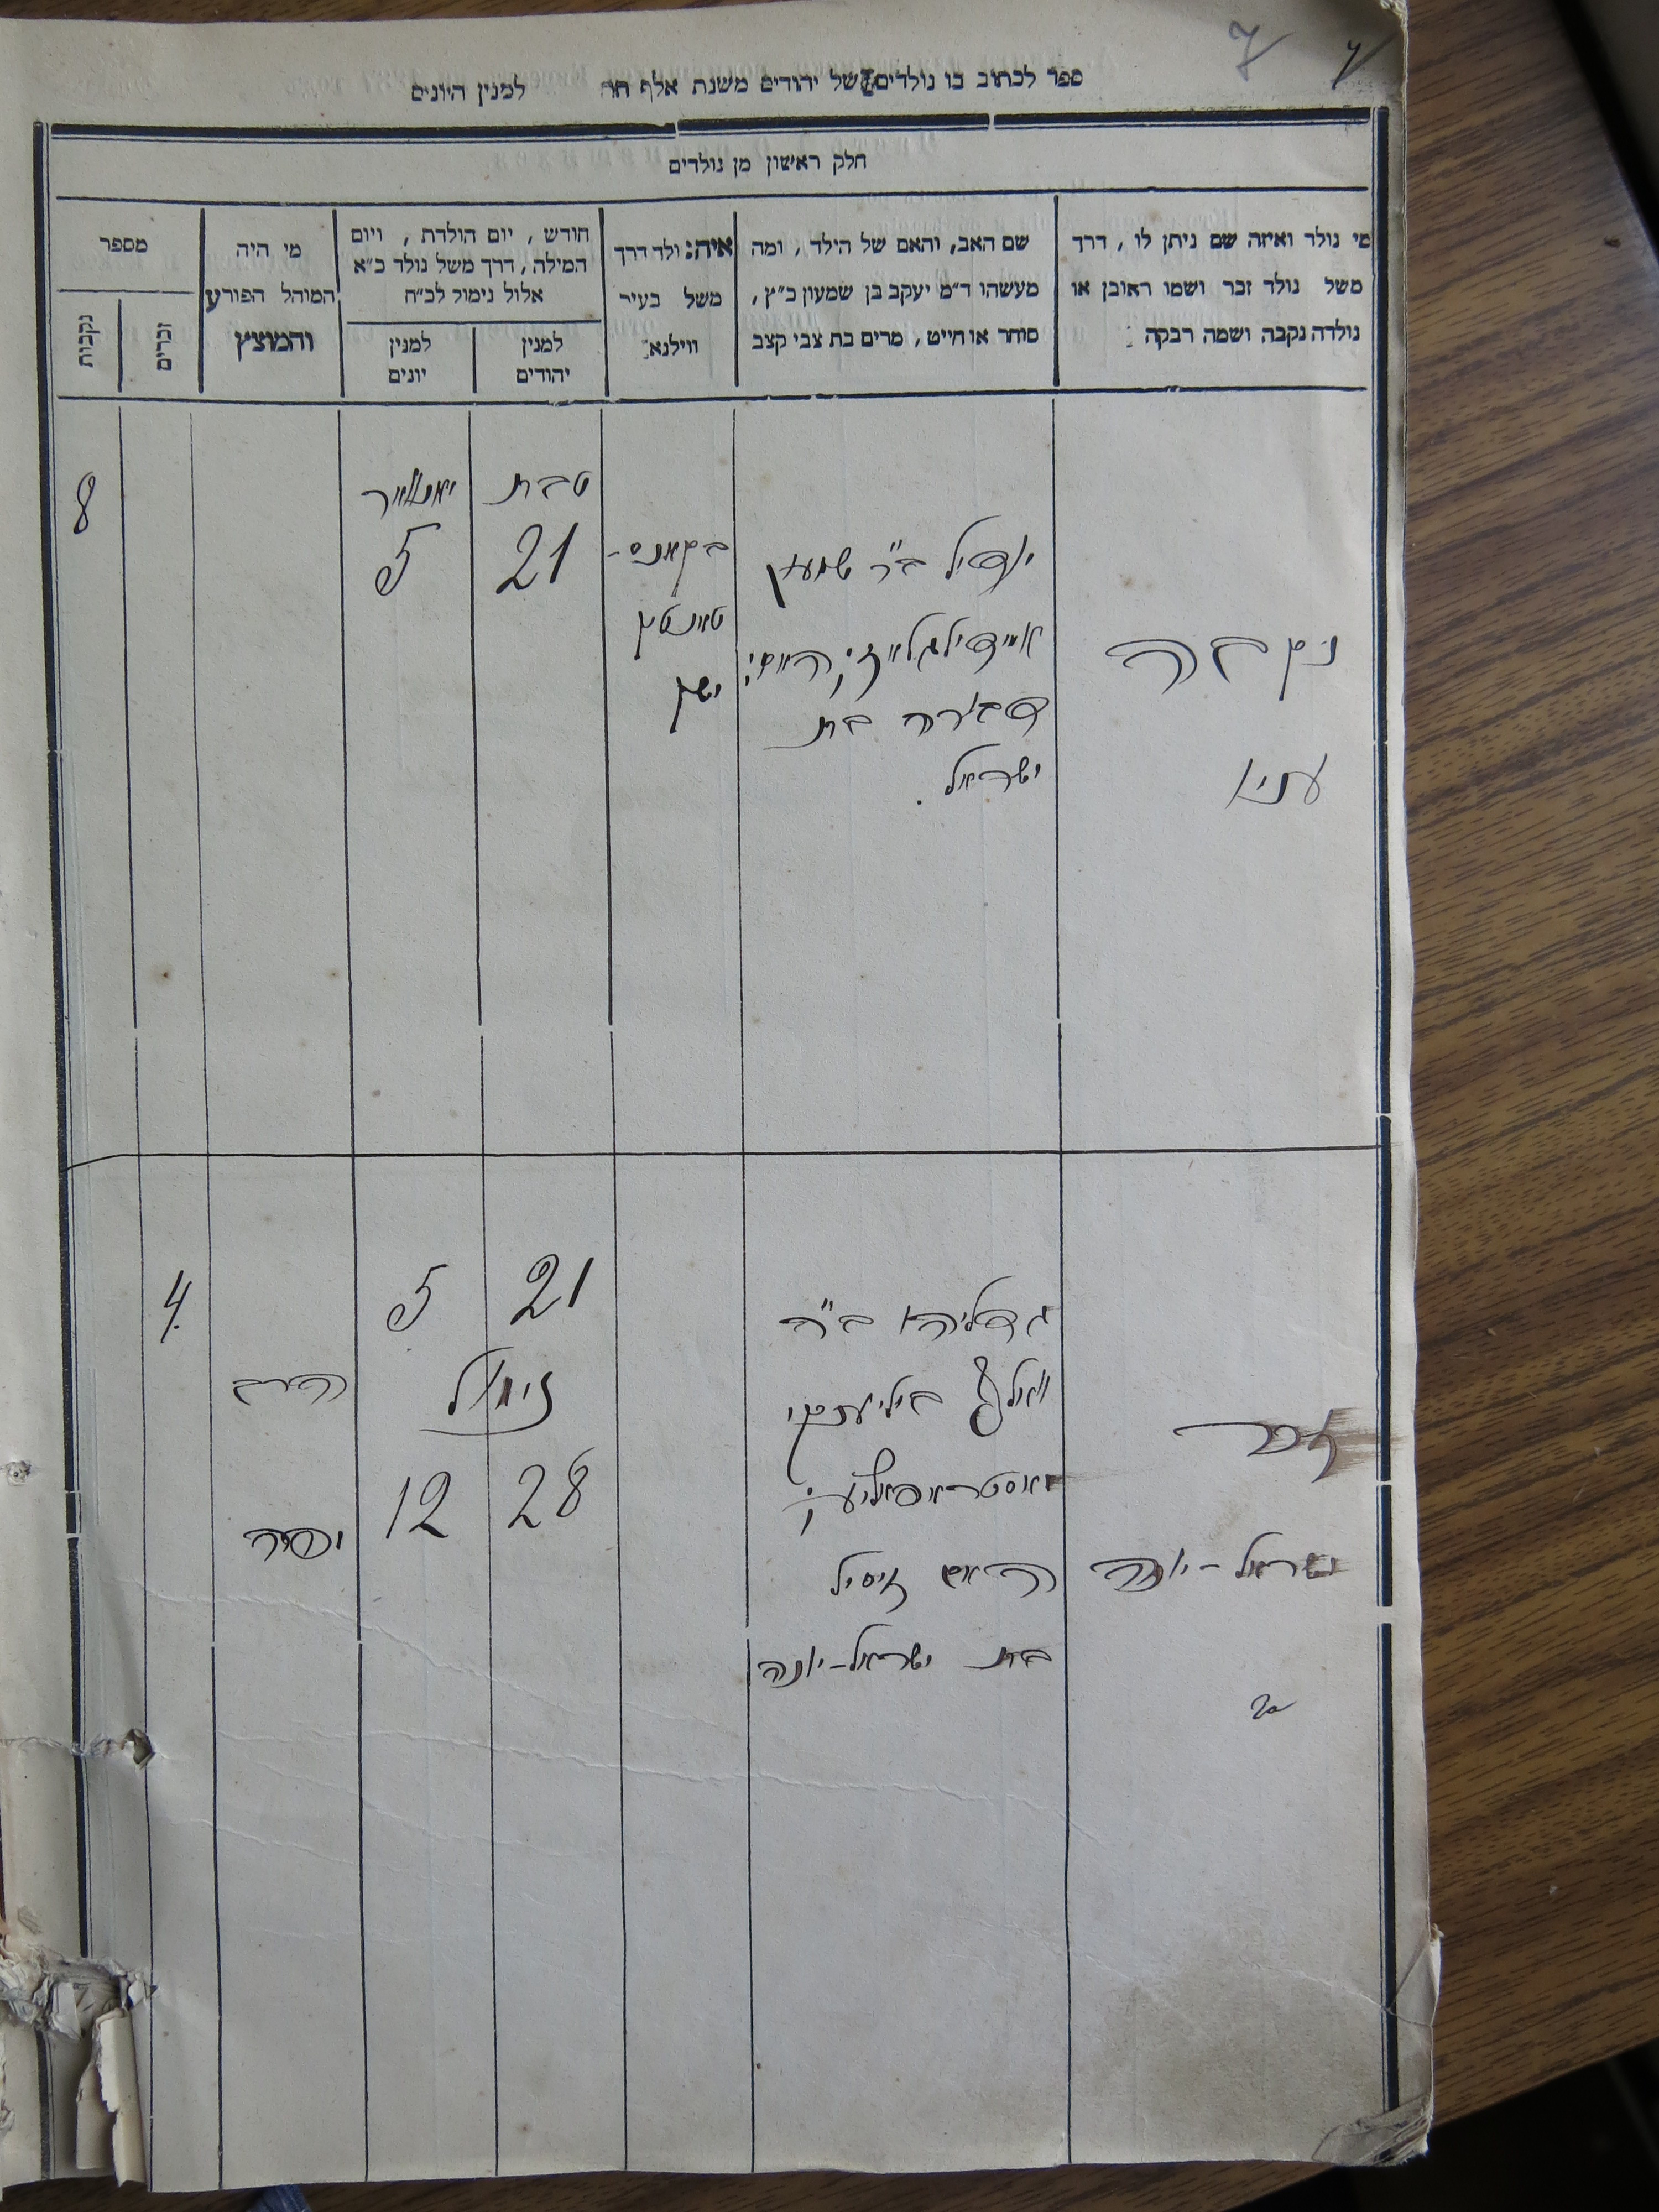 7 7
ספר לכתוב בו נולדים של יהודים משנת אלף תת למנין היונים
חלק ראשון מן נולדים
מי נולד ואיזה שם ניתן לו, דרך
משל נולד זכר ושמו ראובן או
נולדה נקבה ושמה רבקה
שם האב, והאם של הילד, ומה
מעשהו ד״מ יעקב בן שמעון כ״ץ,
סוחר או חייט, מרים בת צבי קצב
איה: ולד דרך
משל בעיר
ווילנא:
חודש, יום הולדת, ויום
המילה, דרך משל נולד כ״א
אלול נימול לכ״ח
למנין
יהודים
למנין
יונים
מי היה
המוהל הפורע
והמוצץ
מספר
זכרים
נקבות
נקבה
יודיל ב״ר שמעון
האם
דבורה בת
ישראל.
בקאנס-
טאנטין
ישק
טבת
21
יאנואר
5
8
זכר
ישראל-יונה
גדליהו ב״ר
וואלף
האם זיסיל
בת ישראל-יונה
21
5
נימול
28
12
הרב
4.